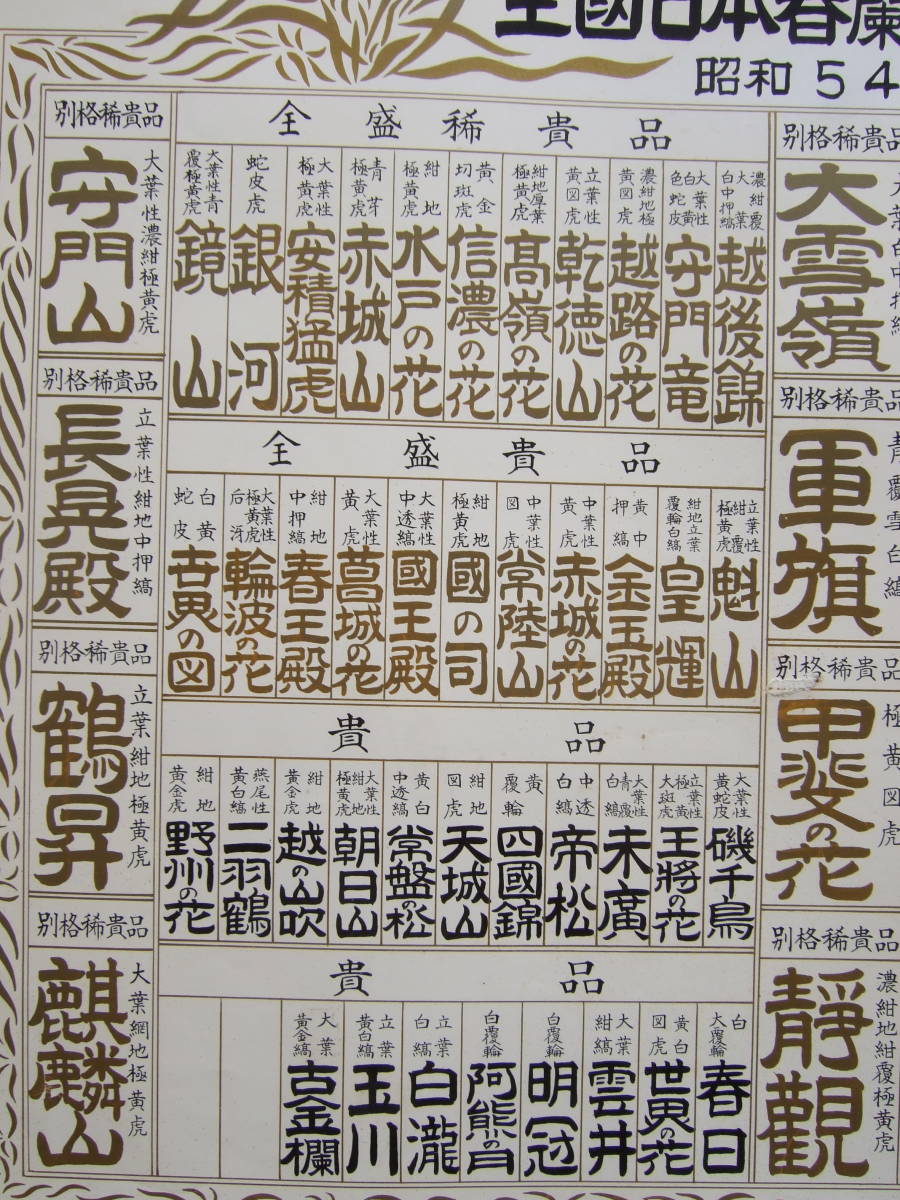 全國日本春蘭
昭和54
別格稀貴品
大雪嶺
別格稀貴品
青覆雪白縞
軍旗
別格稀貴品
極黄図虎
甲斐の花
別格稀貴品
濃紺地紺覆極黄虎
靜觀
全盛稀貴品
濃紺覆大葉白中押縞
越後錦
大葉性白黄色蛇皮
守門竜
濃紺地極黄図虎
越路の花
立葉性黄図虎
乾徳山
紺地厚葉極黄虎
高嶺の花
黄金切斑虎
信濃の花
紺地極黄虎
水戸の花
青芽極黄虎
赤城山
大葉性極黄虎
安積猛虎
蛇皮虎
銀河
大葉性青覆極黄虎
鏡山
全盛貴品
立葉性紺覆極黄虎
魁山
紺地立葉覆輪白縞
皇輝
黄中押縞
金玉殿
中葉性黄虎
赤城の花
中葉性図虎
常陸山
紺地極黄虎
國の司
大葉性中透縞
國王殿
大葉性黄虎
菖城の花
紺地中押縞
春王殿
大葉性極黄虎后冴
輪波の花
白黄蛇皮
吉晃の図
貴品
大葉性黄蛇皮
磯千鳥
立葉性極黄大斑虎
王將の花
大葉性青覆白縞
末廣
中透白縞
帝松
黄覆輪
四國錦
紺地図虎
天城山
黄白中透縞
常盤の松
大葉性紺地極黄虎
朝日山
紺地黄金虎
越の山吹
燕尾性黄白縞
二羽鶴
紺地黄金虎
野州の花
貴品
白大覆輪
春日
黄白図虎
世界の花
大葉紺縞
雲井
白覆輪
明冠
白覆輪
阿熊の月
立葉白縞
白瀧
立葉黄白縞
玉川
大葉黄金縞
古金欄
別格稀貴品
大葉性濃紺極黄虎
守門山
別格稀貴品
立葉性紺地中押縞
長晃殿
別格稀貴品
立葉紺地極黄虎
鶴昇
別格稀貴品
大葉網地極黄虎
麒麟山